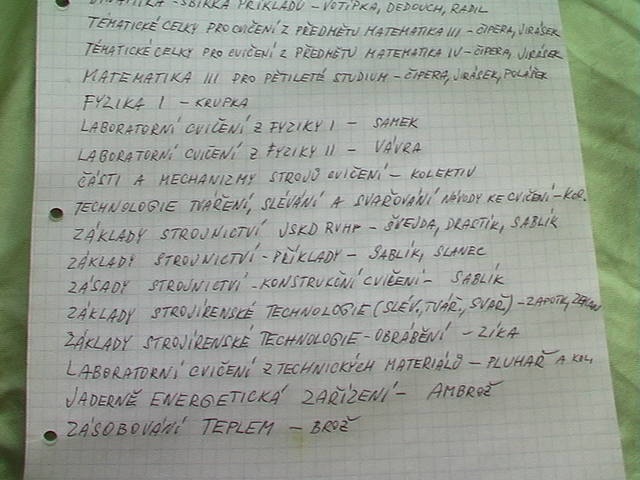 DYNAMIKA - SBÍRKA PŘÍKLADŮ - VOTÍPKA, DEDOUCH, RADIL
TÉMATICKÉ CELKY PRO CVIČENÍ Z PŘEDMĚTU MATEMATIKA III - ČIPERA, JIRÁSEK
TÉMATICKÉ CELKY PRO CVIČENÍ Z PŘEDMĚTU MATEMATIKA IV - ČIPERA, JIRÁSEK
MATEMATIKA III PRO PĚTILETÉ STUDIUM - ČIPERA, JIRÁSEK, POLÁŠEK
FYZIKA I - KRUPKA
LABORATORNÍ CVIČENÍ Z FYZIKY I - SAMEK
LABORATORNÍ CVIČENÍ Z FYZIKY II - VÁVRA
ČÁSTI A MECHANIZMY STROJŮ CVIČENÍ - KOLEKTIV
TECHNOLOGIE TVÁŘENÍ, SLÉVÁNÍ A SVAŘOVÁNÍ NÁVODY KE CVIČENÍ - KOL.
ZÁKLADY STROJNICTVÍ JSKD RVHP - ŠVEJDA, DRASTÍK, SABLÍK
ZÁKLADY STROJNICTVÍ - PŘÍKLADY - SABLÍK, SLANEC
ZÁSADY STROJNICTVÍ - KONSTRUKČNÍ CVIČENÍ - SABLÍK
ZÁKLADY STROJÍRENSKÉ TECHNOLOGIE (SLÉV., TVÁŘ., SVAŘ.) -
ZÁKLADY STROJÍRENSKÉ TECHNOLOGIE - OBRÁBĚNÍ - ZÍKA
LABORATORNÍ CVIČENÍ Z TECHNICKÝCH MATERIÁLŮ - PLUHAŘ A KOL.
JADERNĚ ENERGETICKÁ ZAŘÍZENÍ - AMBROŽ
ZÁSOBOVÁNÍ TEPLEM - BROŽ